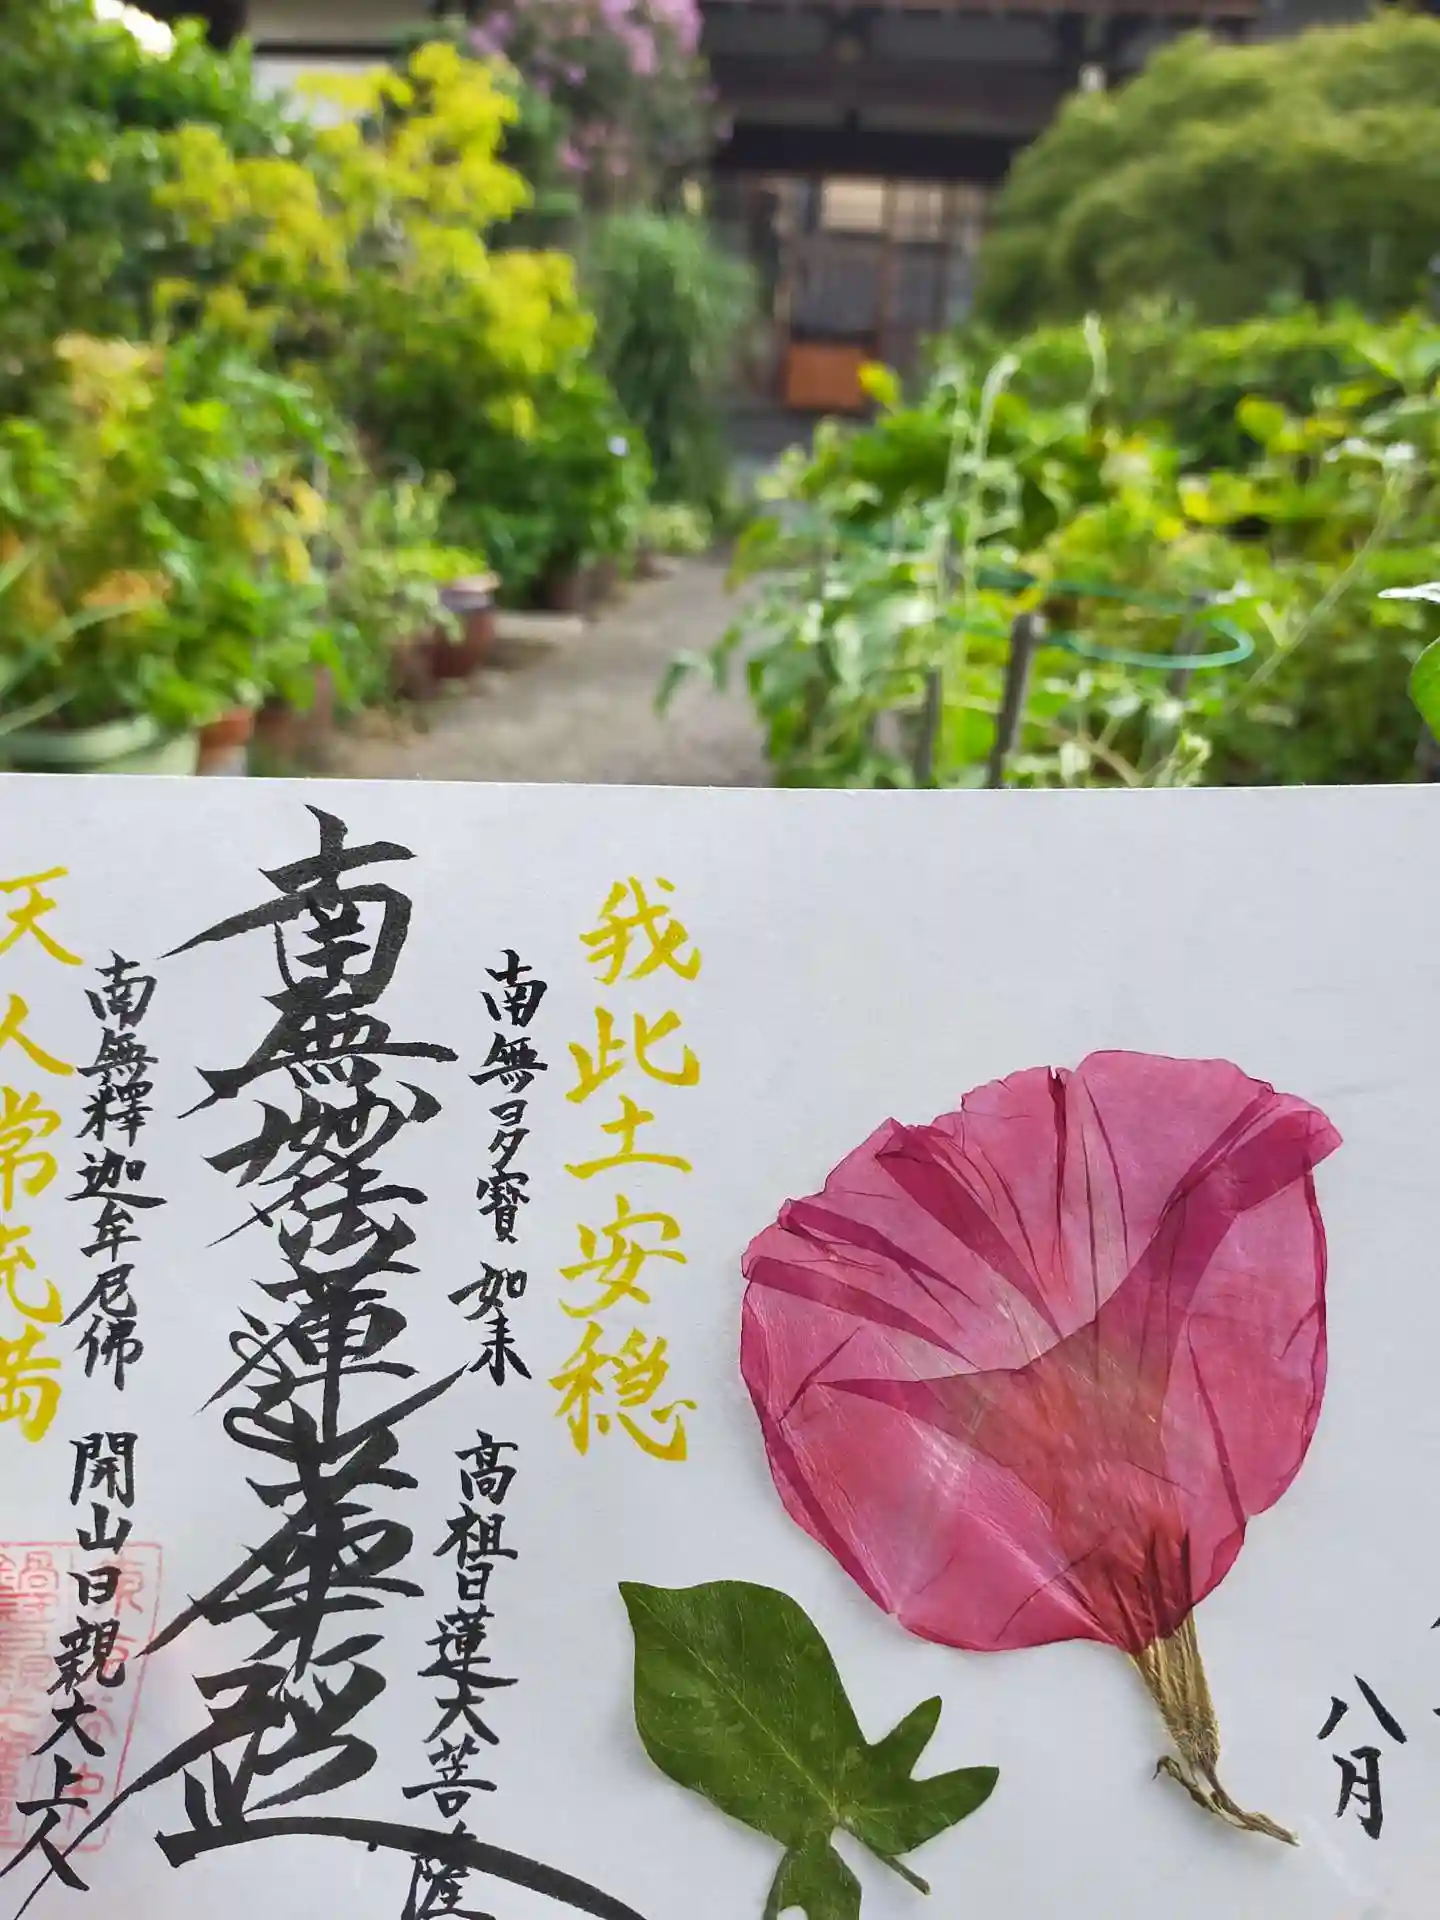 八月
我此土安穏
南無多寶如来
高祖日蓮大菩薩
南無妙法蓮華経
南無釋迦牟尼佛
開山日親大上人
天人常充満